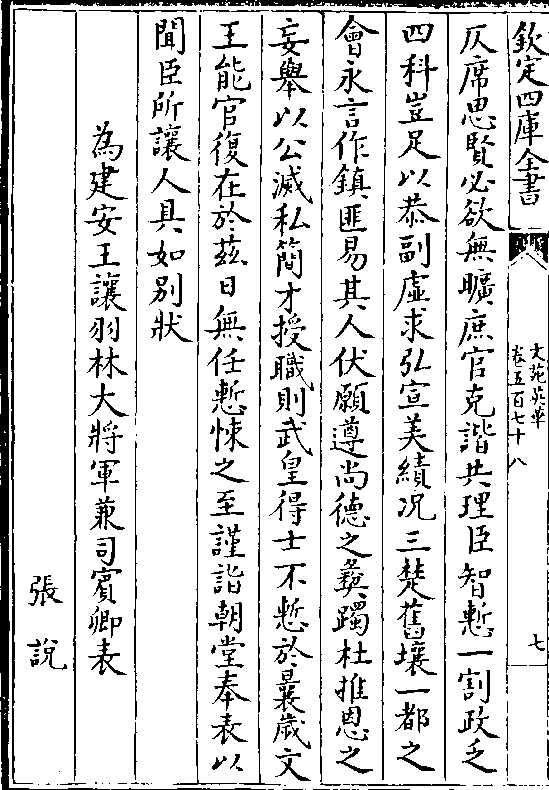 欽定四庫全書
文苑英華
卷五百七十八
七
仄席思賢必欲無曠庶官克諧共理臣智慙一割政乏
四科豈足以恭副虛求弘宣美績况三楚舊壤一都之
會永言作鎮匪易其人伏願遵尚德之彝躅杜推恩之
妄舉以公滅私簡才授職則武皇得士不慙於曩歲文
王能官復在於茲日無任慙悚之至謹詣朝堂奉表以
聞臣所讓人具如別狀
為建安王讓羽林大將軍兼司賓卿表
張說